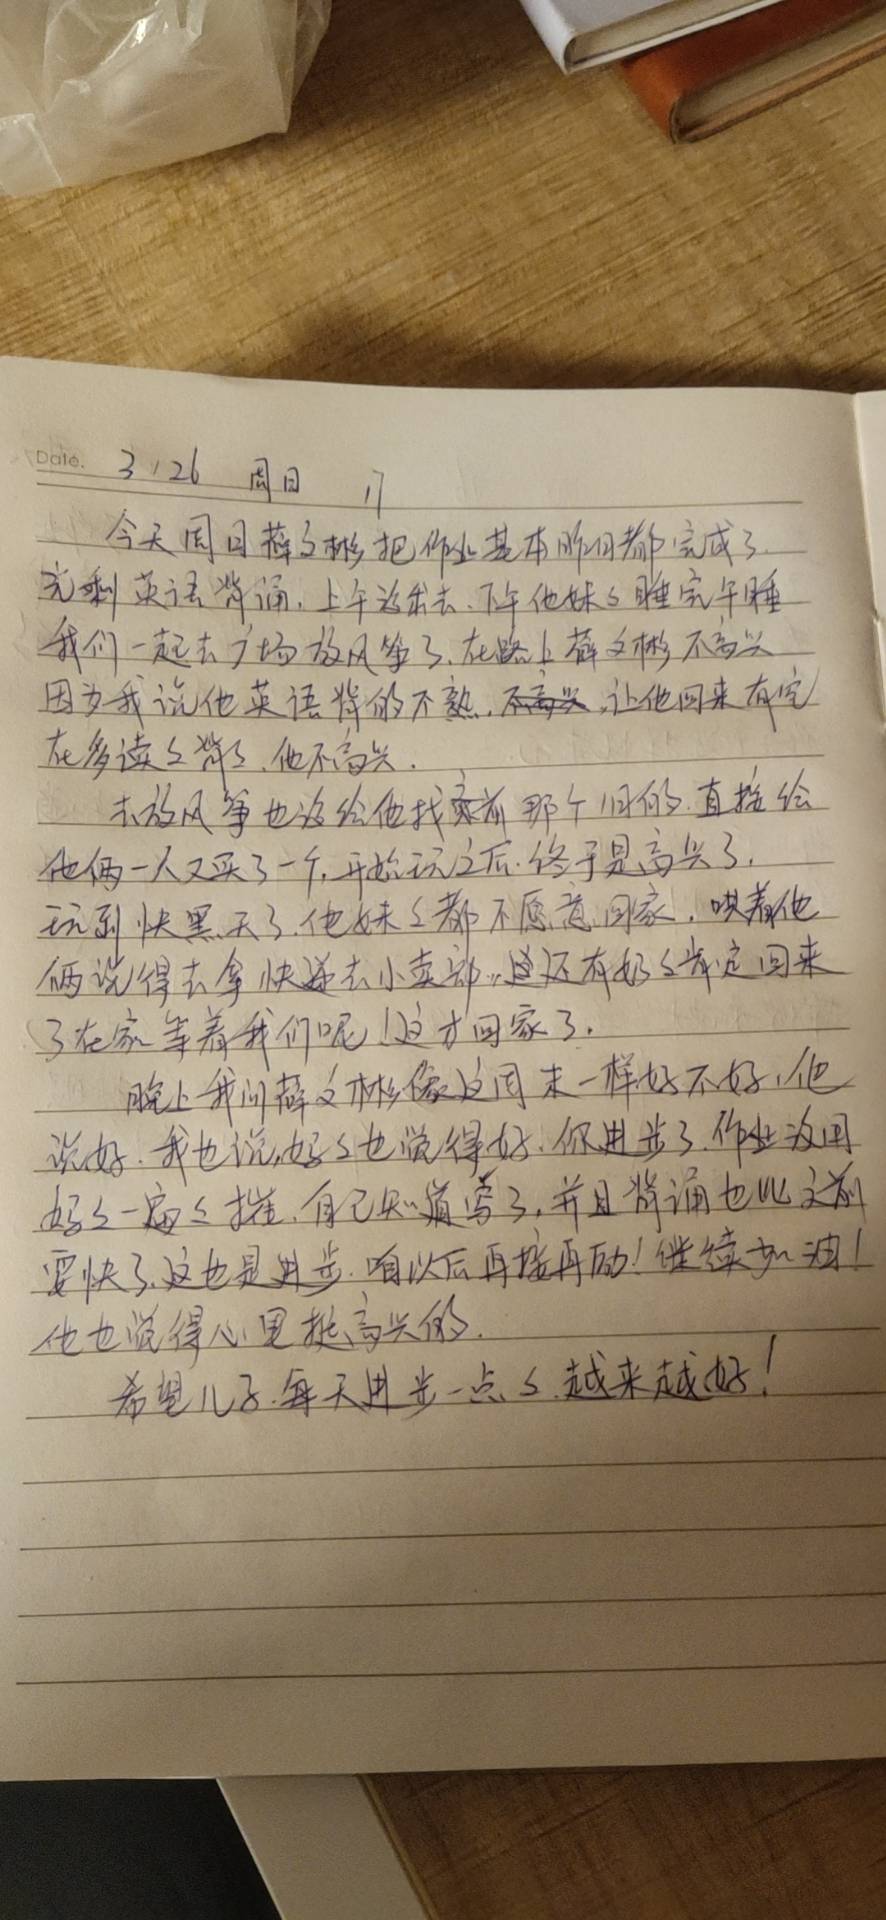 Date. 3/26 周日 17
今天周日薛文彬把作业基本昨日都完成了.
光剩英语背诵，上午没出去.下午他妹々睡完午睡
我们一起去广场放风筝了.在路上薛文彬不高兴
因为我说他英语背的不熟.不高兴,让他回来有空
在多读々背々.他不高兴.
去放风筝也没给他找 那个旧的.直接给
他俩一人又买了一个,开始玩之后.终于是高兴了.
玩到快黑天了.他妹々都不愿意回家.哄着他
俩说得去拿快递去小卖部..还有奶々肯定回来
了在家等着我们呢!这才回家了.
晚上我问薛文彬像这周末一样好不好,他
说好.我也说,妈々也觉得好.你进步了.作业没用
妈々一遍々催.自己知道写了,并且背诵也比之前
要快了.这也是进步.咱以后再接再励!继续加油!
他也觉得心里挺高兴的.
希望儿子.每天进步一点々.越来越好!